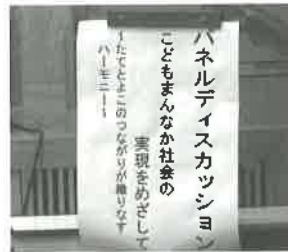 パネルディスカッション
こどもまんなか社会の
実現をめざして
～たてとよこのつながりが織りなす
ハーモニー～